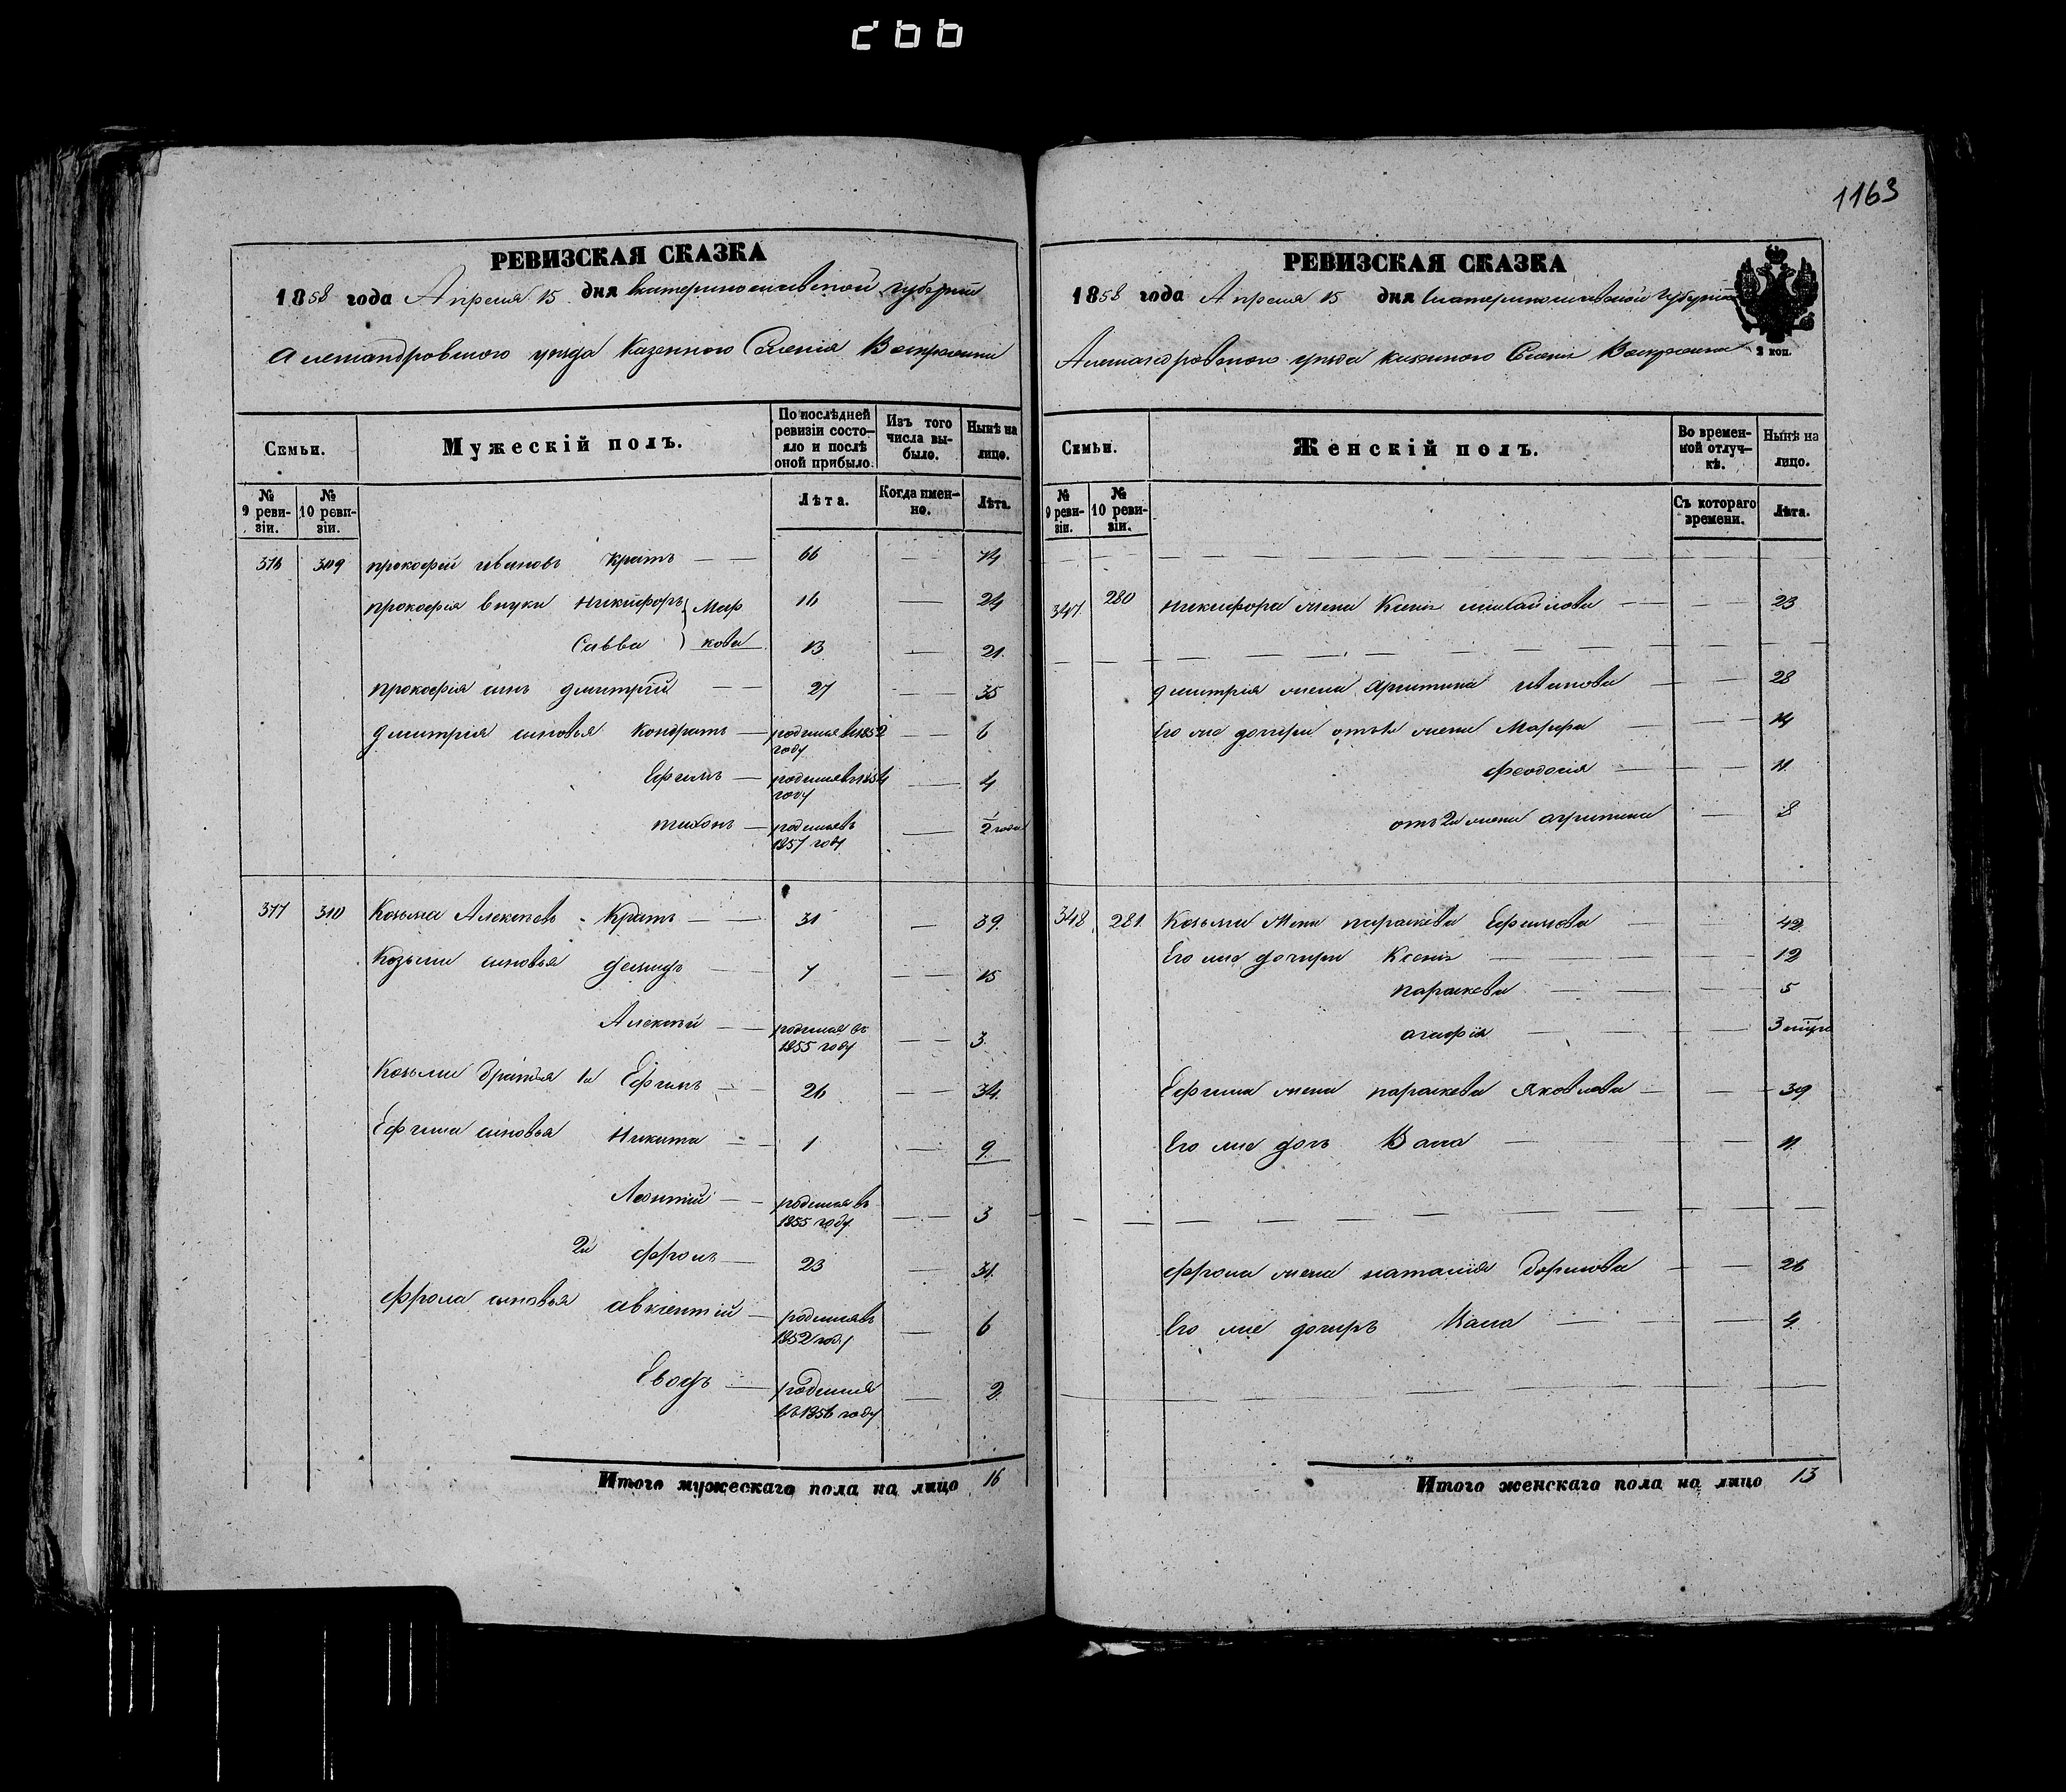 1163
РЕВИЗСКАЯ СКАЗКА
1858 года Апреля 15 дня Екатеринославской губернии
Александровского уезда Казенного Селенія Воскресенки
Семьи.
Мужескій полъ.
По послѣдней ревизіи состо-яло и послѣ оной прибыло.
Изъ того числа вы-было.
Нынѣ на лицо.
№ 9 реви-зіи.
№ 10 реви-зіи.
Лѣта.
Когда имен-но.
Лѣта.
376 309 прокофій ивановъ Кратъ — — 66 — 74
прокофія внуки Никифоръ } Мар 16 — 24
Савва } кова 13 — 21.
прокофія сынъ дмитрій — — 27 — 35
дмитрія сыновья Кондратъ — родился въ 1852 году — — 6
Ефимъ — родился въ 1854 году — 4
тихонъ — родился въ 1857 году — 1/2 года
377 310 Козьма Алексѣевъ Кратъ — — 31 — 39.
Козьми сыновья демидъ — 7 — — 15
Алексѣй — родился въ 1855 году — — 3.
Козьми братья 1й Ефимъ — — 26 — — 34.
Ефима сыновья Никита — — 1 — 9.
Леонтій — родился въ 1855 году — — 3
2й фролъ — 23 — 31.
Фрола сыновья авксентій — родился въ 1852 году — 6
— родился въ 1856 году — 2.
Итого мужескаго пола на лицо 16
РЕВИЗСКАЯ СКАЗКА
1858 года Апреля 15 дня Екатеринославской Губерніи
Александровского уезда казенного Селенія Воскресенки
2 коп.
Семьи.
Женскій полъ.
Во времен-ной отлуч-кѣ.
Нынѣ на лицо.
№ 9 реви-зіи.
№ 10 реви-зіи.
Съ котораго времени.
Лѣта.
347 280 никифора жена Ксенія михайлова — — 23
дмитрія жена ивanова — — 28
Его же дочери отъ 1й жены Марфа — — 14
феодосія — — 11.
отъ 2й жены — 8
348 281. Козьми жена параскева Ефимова — — 42
Его же дочери Ксенія — — 12
параскева — — 5
агафія — — 3
Ефима жена параскева Яковлева — — 39
Его же дочь Васса — — 11.
фрола жена наталія борисова — — 26
Его же дочерь Васса — — 4.
Итого женскаго пола на лицо 13